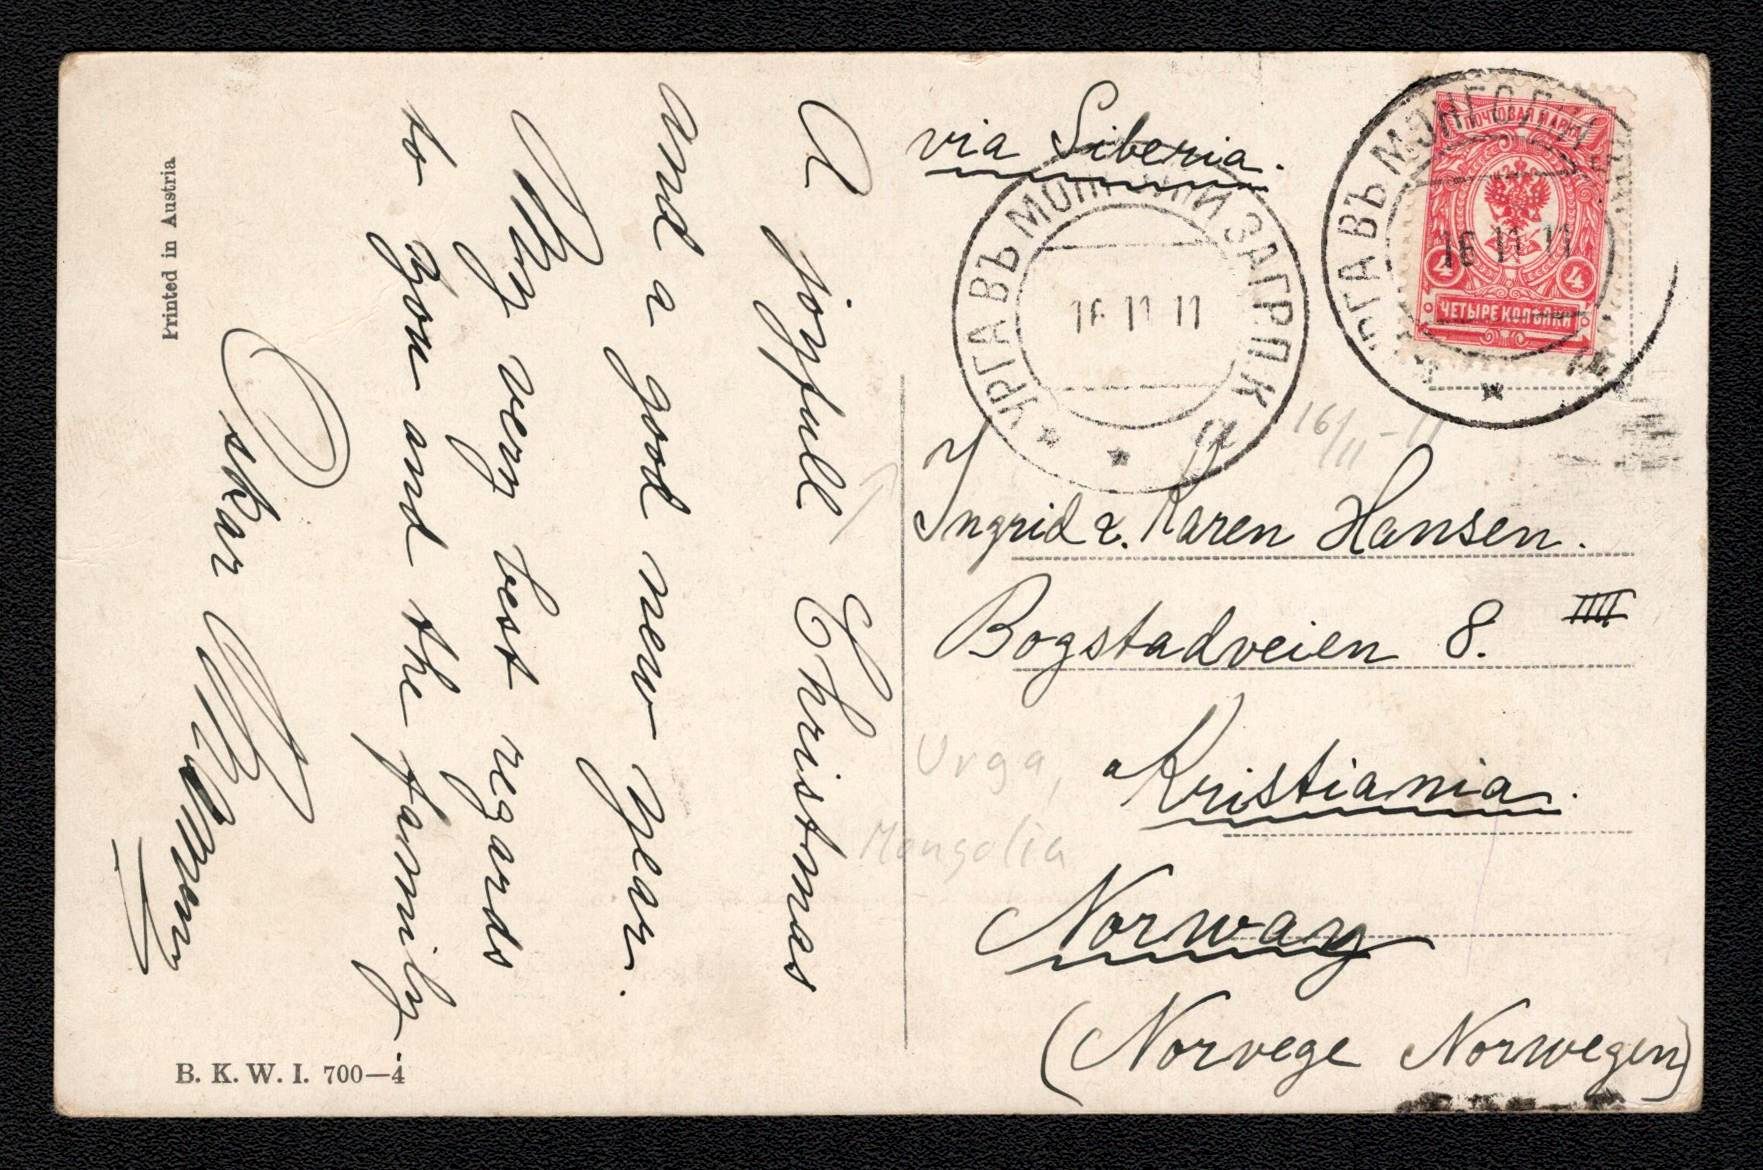 Printed in Austria
A joyfull Christmas
and a good new year.
My very best regards
to you and the family
Oskar
B. K. W. I. 700—4
via Siberia.
УРГА ВЪ МОНГОЛИИ ЗАГР.П.К
16 11 11
УРГА ВЪ МОНГОЛИИ
16 11 11
ПОЧТОВАЯ МАРКА
4 4
ЧЕТЫРЕ КОПѢЙКИ
16/11-11
Ingrid & Karen Hansen.
Bogstadveien 8. IIII
Kristiania.
Norway
(Norvege Norwegen)
Urga,
Mongolia